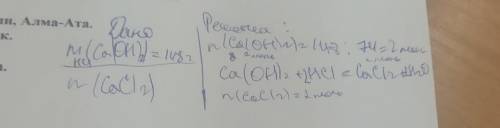 ин, Алма-Ата.
к.
Дано
m(Ca(OH)₂)=148г
HCl
n(CaCl₂)
Решение:
n(Ca(OH)₂)=148:74=2моль
2моль 2моль
Ca(OH)₂+2HCl=CaCl₂+2H₂O
n(CaCl₂)=2моль